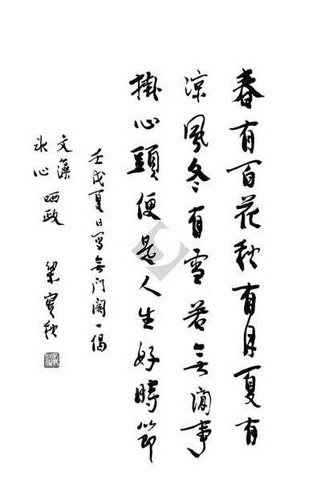 春有百花秋有月夏有
凉風冬有雪若無閑事
掛心頭便是人生好時節
壬戌夏日寫無門關一偈
文藻
冰心 哂政
梁實秋